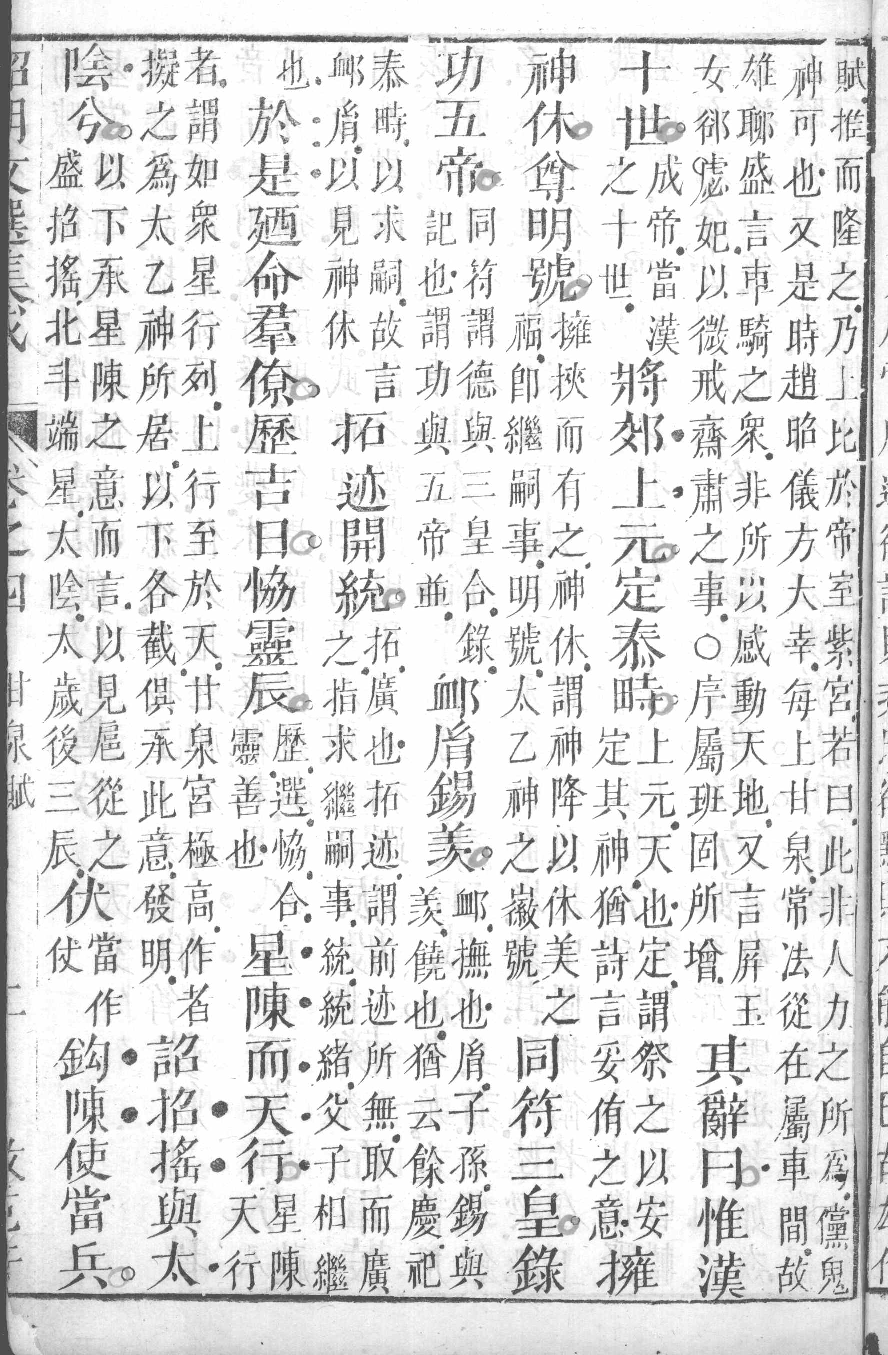 賦推而隆之乃上比於帝室紫宮若曰此非人力之所為儻鬼
神可也又是時趙昭儀方大幸每上甘泉常法從在屬車間故
雄聊盛言車騎之衆非所以感動天地又言屏玉
女卻虙妃以微戒齋肅之事○序屬班固所增
其辭曰惟漢
十世
成帝當漢
之十世
將郊上元定泰畤
上元天也定謂祭之以安
定其神猶詩言安侑之意
擁
神休尊明號
擁挾而有之神休謂神降以休美之
福卽繼嗣事明號太乙神之徽號
同符三皇錄
功五帝
同符謂德與三皇合錄
記也謂功與五帝並
卹胤錫羨
卹撫也胤子孫錫與
羨饒也猶云餘慶祀
泰畤以求嗣故言
卹胤以見神休
拓迹開統
拓廣也拓迹謂前迹所無取而廣
之指求繼嗣事統統緒父子相繼
也
於是廼命羣僚歷吉日恊靈辰
歷選恊合
靈善也
星陳而天行
星陳
天行
者謂如衆星行列上行至於天甘泉宮極高作者
擬之為太乙神所居以下各截俱承此意發明
詔招搖與太
陰兮
以下承星陳之意而言以見扈從之
盛招搖北斗端星太陰太歲後三辰
伏
當作
仗
鈎陳使當兵
昭明文選集成
卷之四
甘泉賦